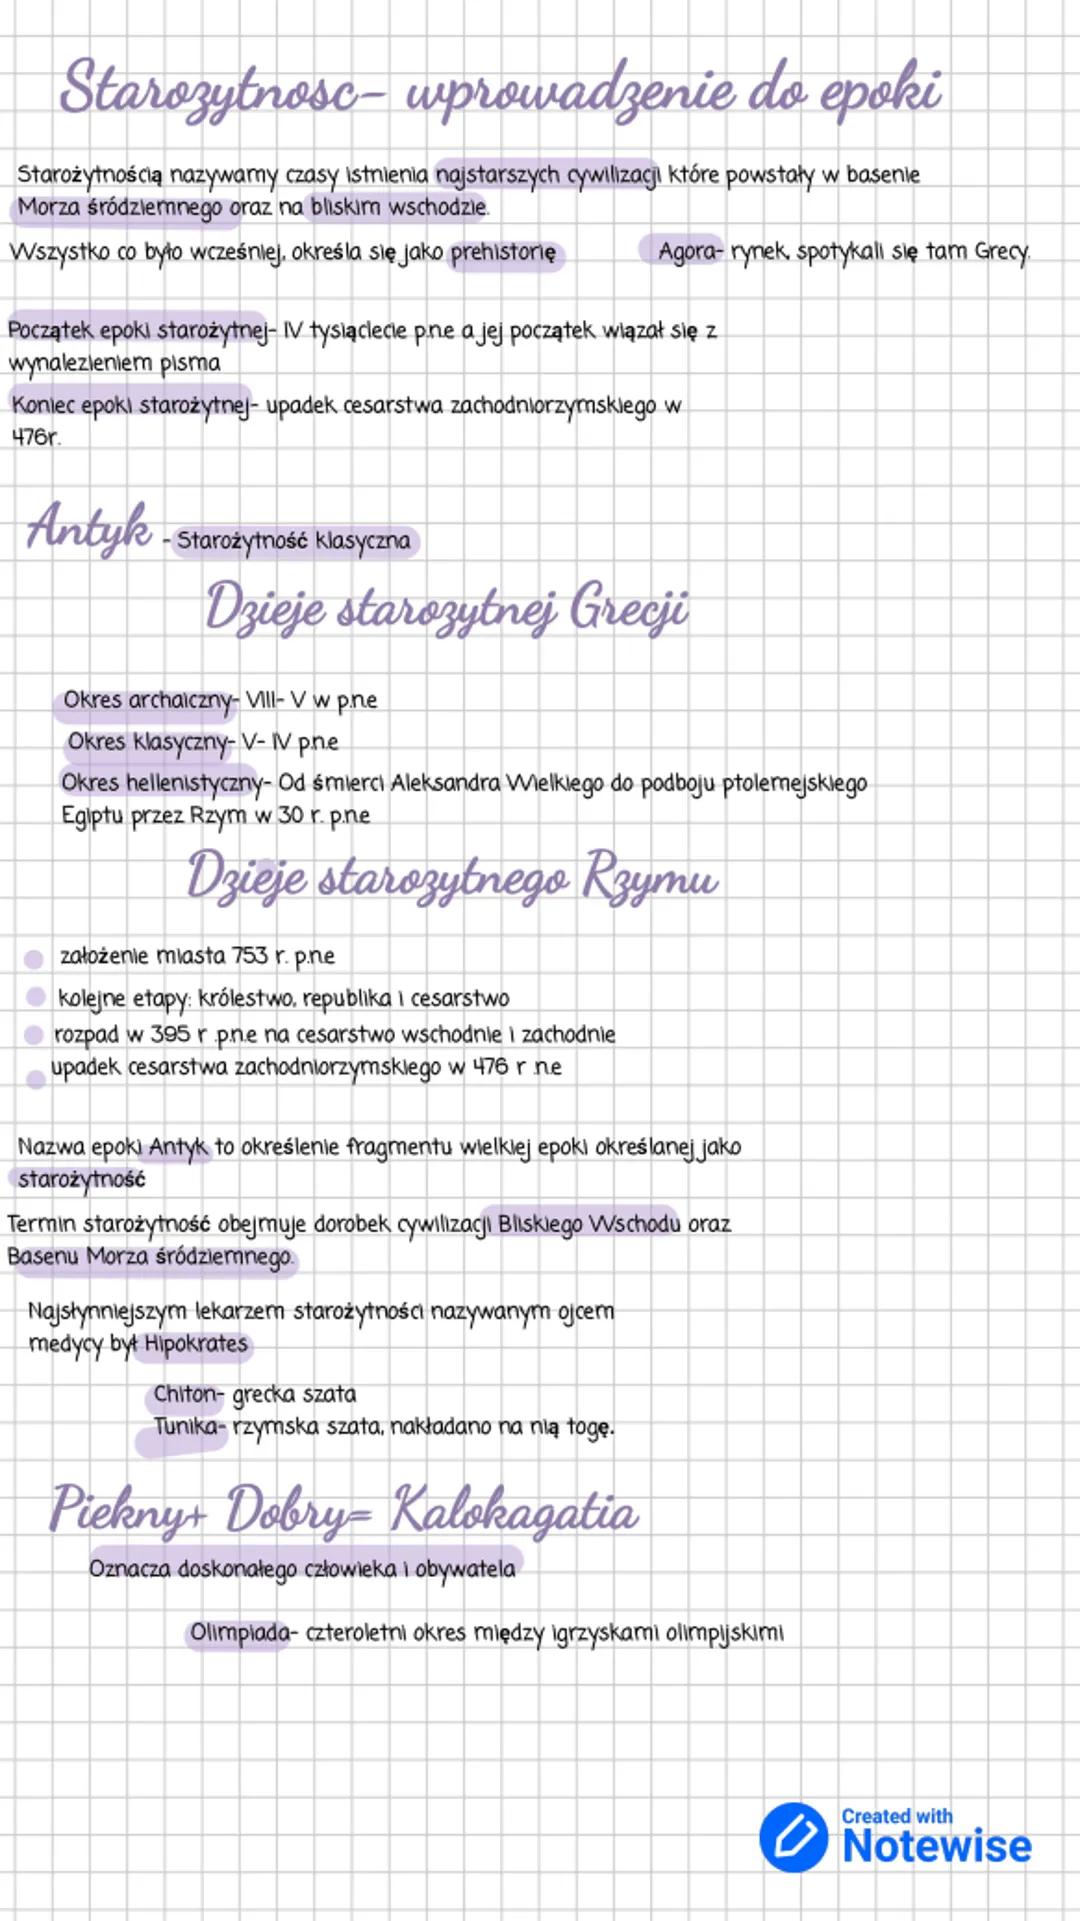 Starozytnosc- wprowadzenie do epoki
Starożytnością nazywamy czasy istnienia najstarszych cywilizacji które powstały w basenie
Morza śródziemnego oraz na bliskim wschodzie.
Wszystko co było wcześniej, określa się jako prehistorię
Agora- rynek, spotykali się tam Grecy.
Początek epoki starożytnej- IV tysiąclecie p.n.e a jej początek wiązał się z
wynalezieniem pisma
Koniec epoki starożytnej- upadek cesarstwa zachodniorzymskiego w
476r.
Antyk - Starożytność klasyczna
Dzieje starozytnej Grecji
Okres archaiczny- VIII- V w p.n.e
Okres klasyczny- V- IV p.n.e
Okres hellenistyczny- Od śmierci Aleksandra Wielkiego do podboju ptolemejskiego
Egiptu przez Rzym w 30 r. p.n.e
Dzieje starozytnego Rzymu
założenie miasta 753 r. p.n.e
kolejne etapy: królestwo, republika i cesarstwo
rozpad w 395 r .p.n.e na cesarstwo wschodnie i zachodnie
upadek cesarstwa zachodniorzymskiego w 476 r .n.e
Nazwa epoki Antyk to określenie fragmentu wielkiej epoki określanej jako
starożytność
Termin starożytność obejmuje dorobek cywilizacji Bliskiego Wschodu oraz
Basenu Morza śródziemnego.
Najsłynniejszym lekarzem starożytności nazywanym ojcem
medycy był Hipokrates
Chiton- grecka szata
Tunika- rzymska szata, nakładano na nią togę.
Piekny+ Dobry= Kalokagatia
Oznacza doskonałego człowieka i obywatela
Olimpiada- czteroletni okres między igrzyskami olimpijskimi
Created with
Notewise